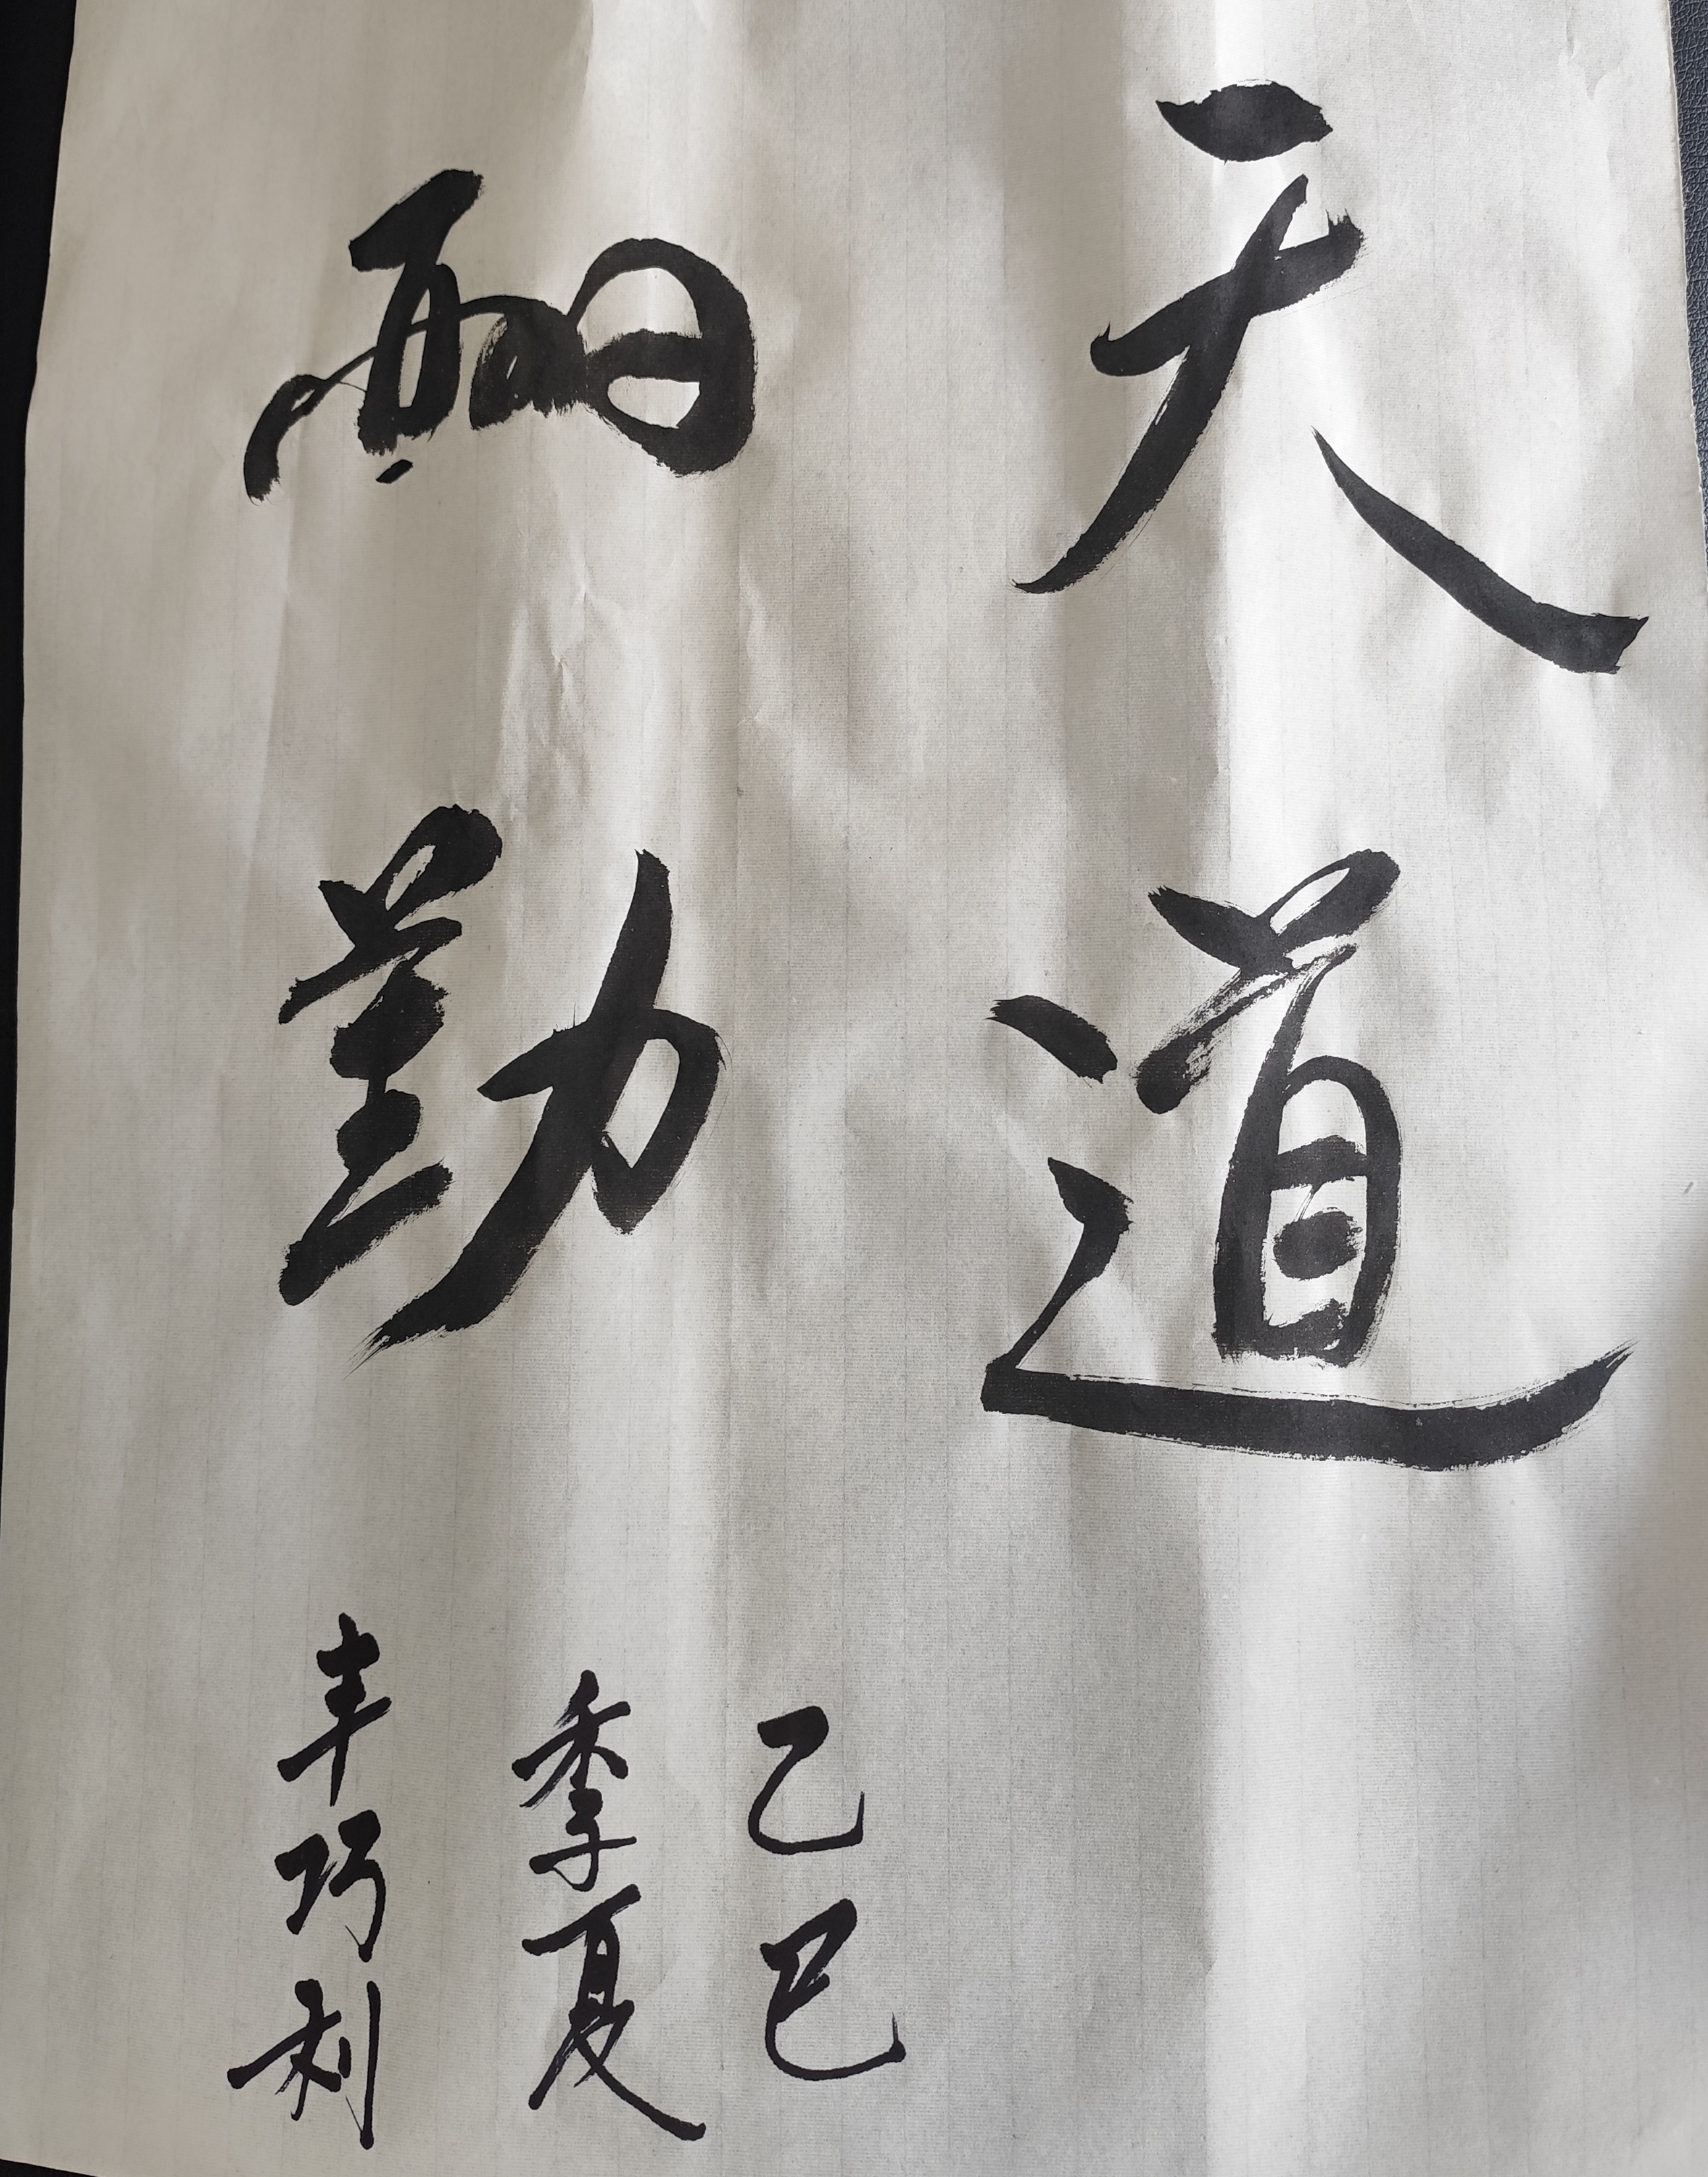 天道
酬勤
乙巳
季夏
丰巧利